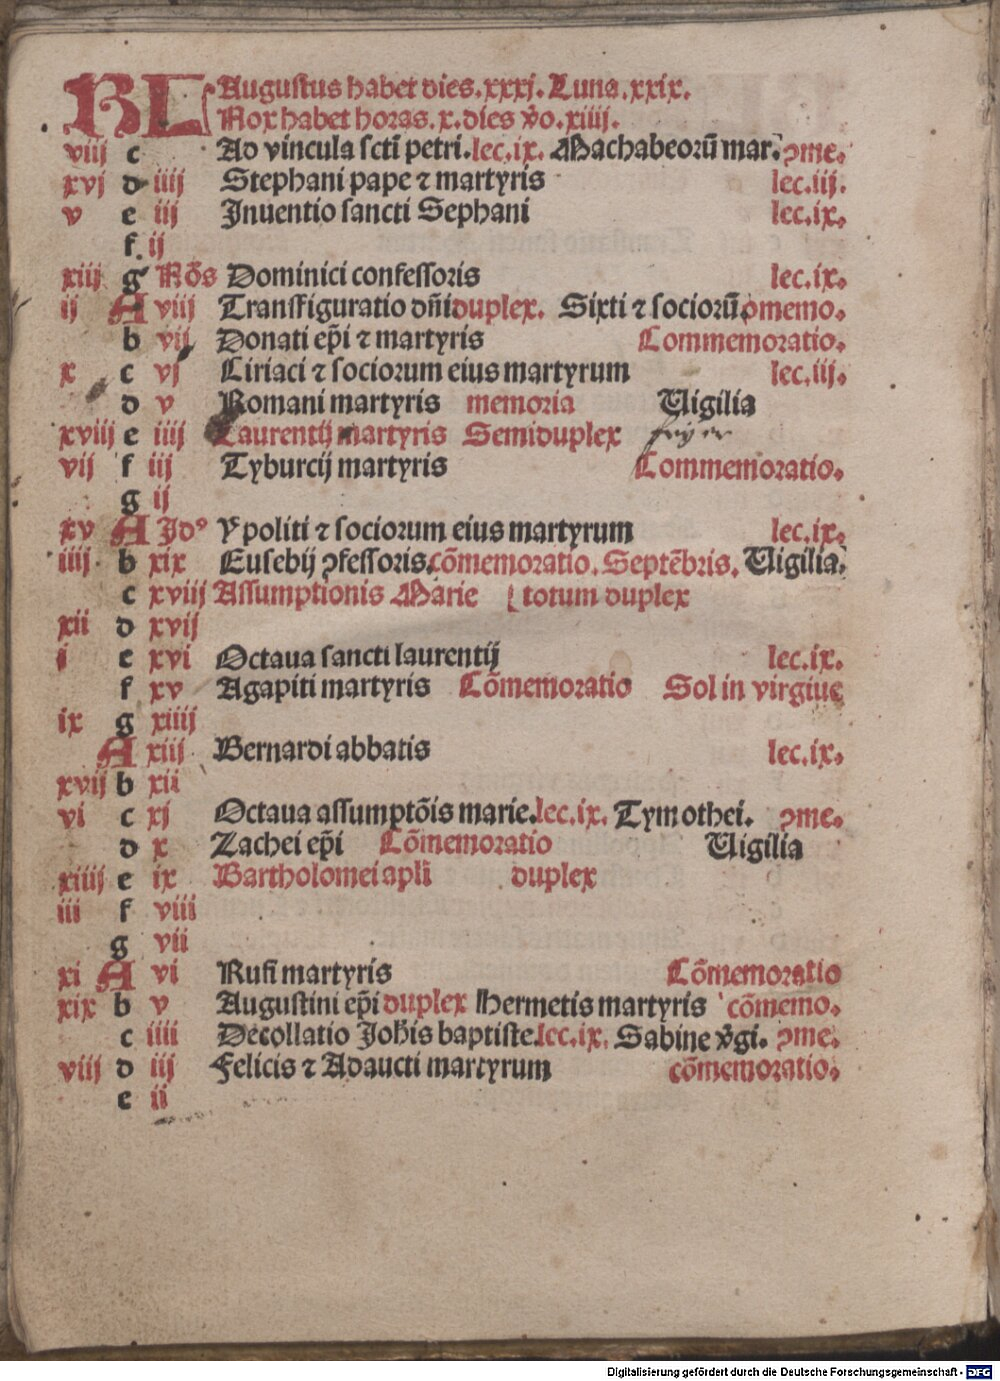 KL Augustus habet dies.xxxj. Luna.xxix.
Nox habet horas.x.dies v̓o.xiiij.
viij c Ad vincula scti petri.lec.ix. Machabeorū mar. ꝯme.
xvj d iiij Stephani pape ⁊ martyris lec.iij.
v e iij Inuentio sancti Sephani lec.ix.
f ij
xiij g Nōs Dominici confessoris lec.ix.
ij A viij Transfiguratio dn̄i duplex. Sixti ⁊ sociorū ꝯmemo.
b vij Donati ep̄i ⁊ martyris Commemoratio.
x c vj Ciriaci ⁊ sociorum eius martyrum lec.iij.
d v Romani martyris memoria Uigilia
xviij e iiij Laurentij martyris Semiduplex
vij f iij Tyburcij martyris Commemoratio.
g ij
xv A Idꝰ Ypoliti ⁊ sociorum eius martyrum lec.ix.
iiij b xix Eusebij ꝯfessoris.cōmemoratio. Septēbris. Uigilia.
c xviij Assumptionis Marie totum duplex
xii d xvij
i e xvi Octaua sancti laurentij lec.ix.
f xv Agapiti martyris Cōmemoratio Sol in virgine
ix g xiiij
A xiij Bernardi abbatis lec.ix.
xvij b xii
vi c xj Octaua assumptōis marie.lec.ix. Tymothei. ꝯme.
d x Zachei ep̄i Cōmemoratio Uigilia
xiiij e ix Bartholomei apl̄i duplex
iii f viii
g vii
xi A vi Rufi martyris Cōmemoratio
xix b v Augustini ep̄i duplex Hermetis martyris cōmemo.
c iiii Decollatio Joh̄is baptiste.lec.ix. Sabine v̓gi. ꝯme.
viij d iij Felicis ⁊ Adaucti martyrum cōmemoratio.
e ii
Digitalisierung gefördert durch die Deutsche Forschungsgemeinschaft - DFG